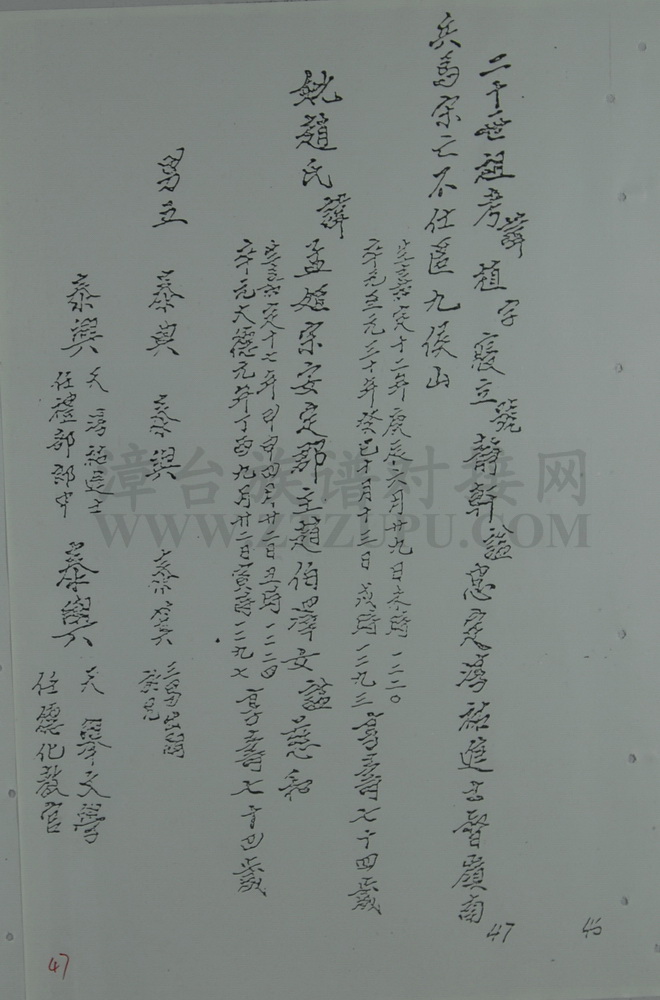 二十世祖考諱植字寢立號静軒諡忠定淳祐進士督廣南
兵馬宋亡不仕匿九侯山
生嘉定十二年庚辰六月廿九日未時一二二〇
卒元至元三十年癸巳十月十三日戌時一二九三享壽七十四歲
妣趙氏諱孟媫宋安定郡主趙伯澤女諡慈和
生嘉定十七年甲申四月廿二日丑時一二二四
卒元大德元年丁酉九月廿二日寅時一二九七享壽七十四歲
男五 泰 泰
泰興
淳祐進士
任禮部郎中
舉文學
任德化教官
漳台族谱对接网
WWW.ZTZUPU.COM
47
46
47